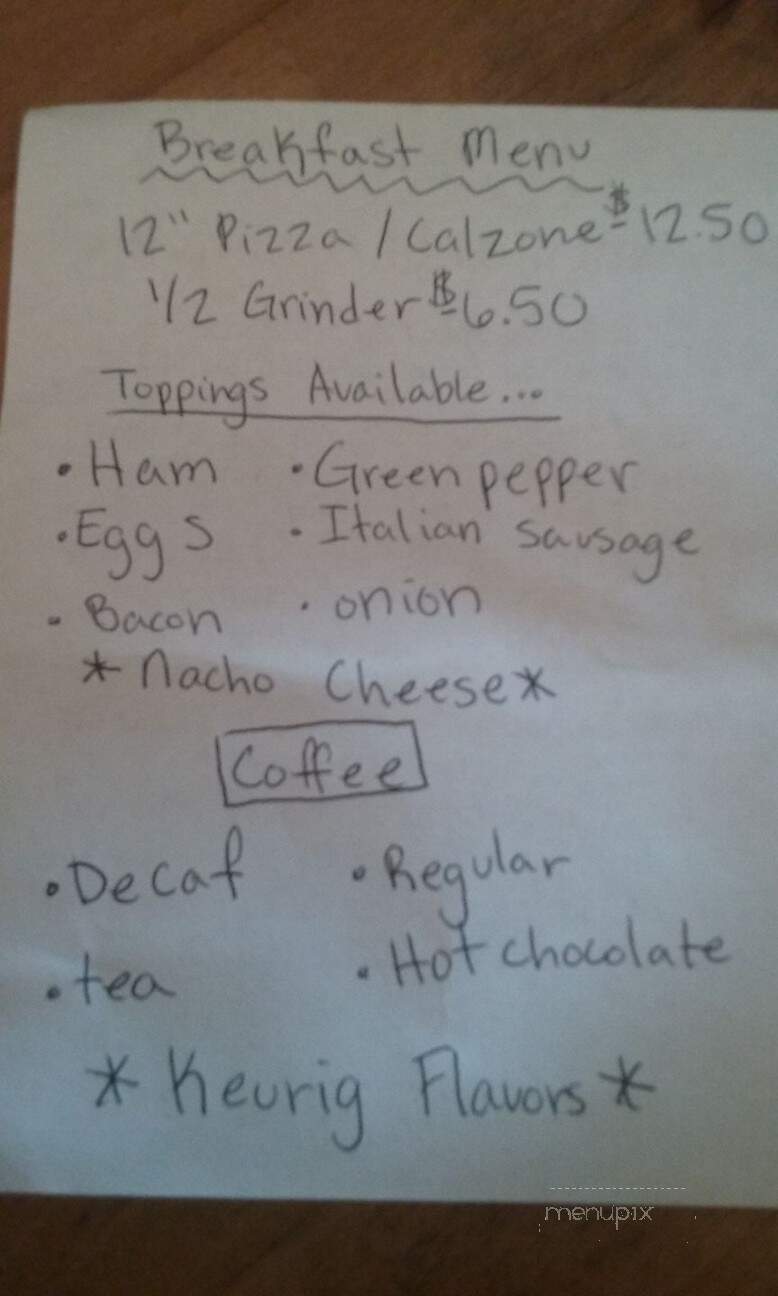 Breakfast Menu
12" Pizza / Calzone $12.50
1/2 Grinder $6.50
Toppings Available...
• Ham • Green pepper
• Eggs • Italian sausage
• Bacon • onion
* Nacho Cheese *
Coffee
• Decaf • Regular
• tea • Hot chocolate
* Keurig Flavors *
menupix